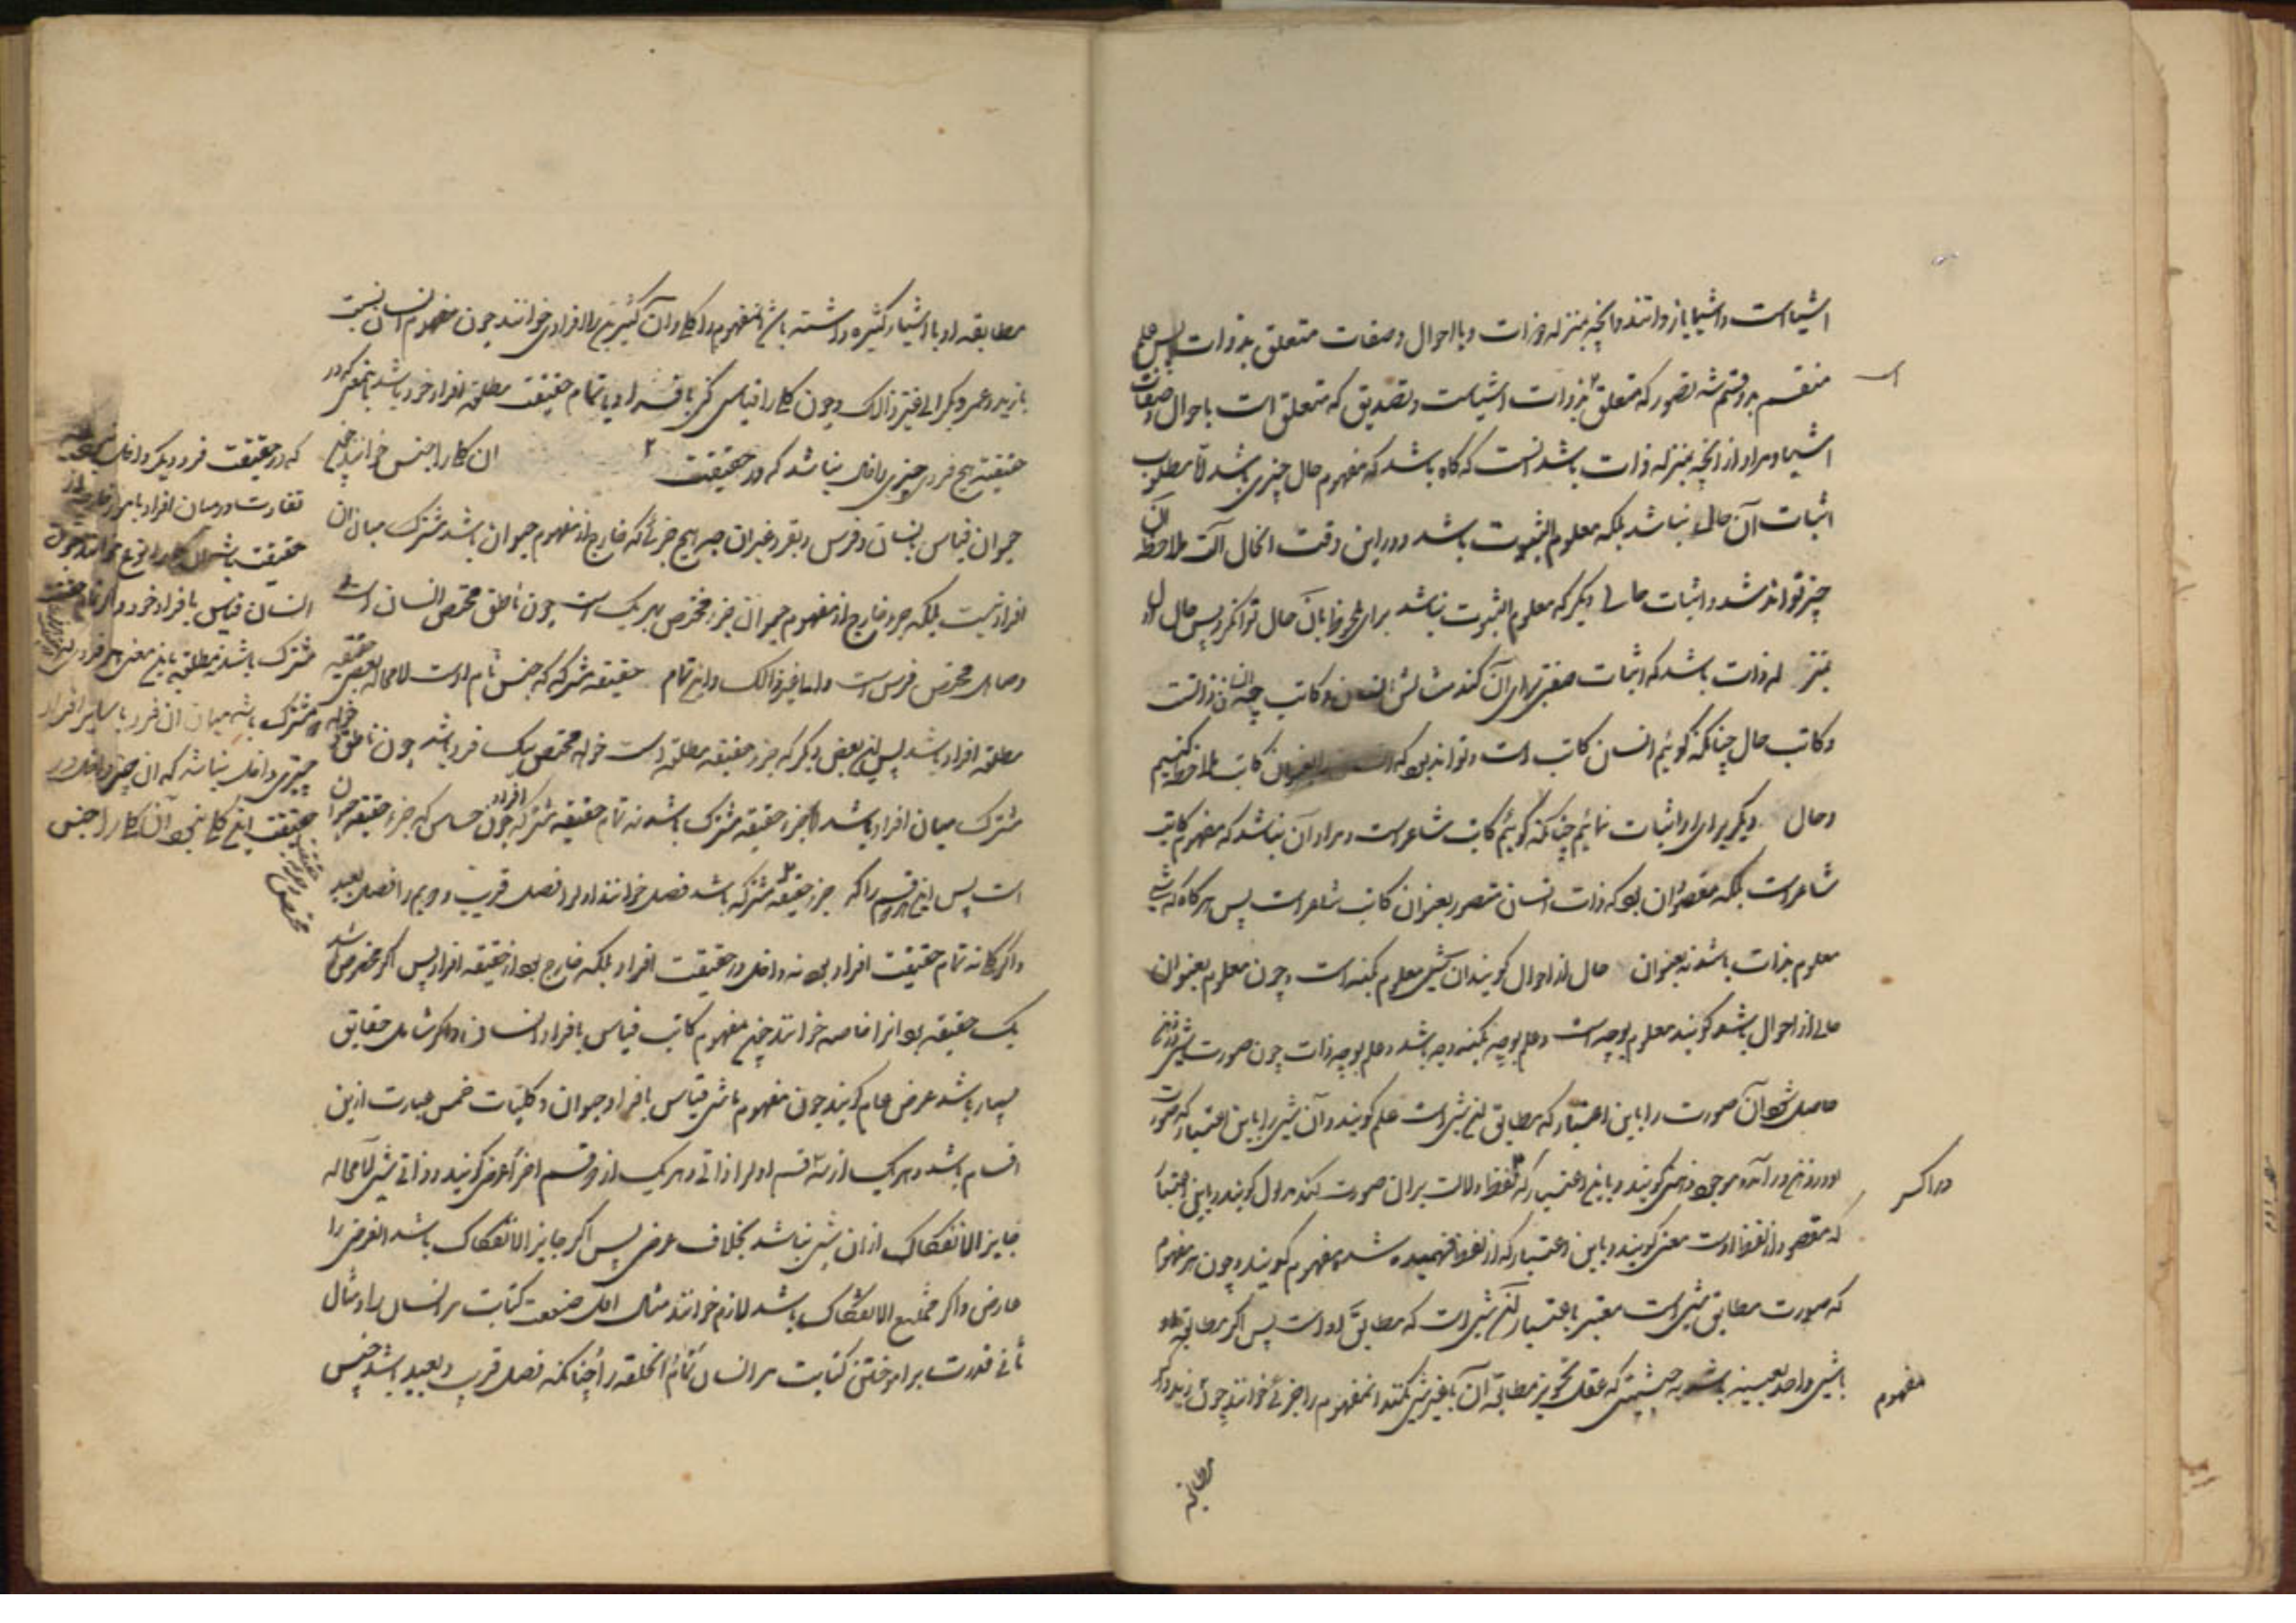 اشیاست و اشیا یا ذواتند و آنچه بمنزله ذوات و یا احوال و صفات متعلق بذوات پس علم
منقسم بدو قسم شد تصور که متعلق بذوات اشیاست و تصدیق که متعلق است باحوال و صفات
اشیا و مراد از آنچه بمنزله ذات باشد آنست که گاه باشد که مفهوم حال چیزی باشد اما مطلوب
اثبات آن حال نباشد بلکه معلوم الثبوت باشد و در این وقت آن حال آلت ملاحظه آن
چیز تواند شد و اثبات حالی دیگر که معلوم الثبوت نباشد برای ملحوظ بآن حال توان کرد پس حال اول
بمنزله ذات باشد که اثبات صفتی برای آن کنند مثالش انسان و کاتب چه انسان ذاتست
و کاتب حال چنانکه گوئیم انسان کاتب است و تواند بود که انسان بعنوان کاتب ملاحظه کنیم
و حال دیگر برای او اثبات نمائیم چنانکه گوئیم کاتب شاعر است و مراد آن نباشد که مفهوم کاتب
شاعر است بلکه مقصود آن بود که ذات انسان متصور بعنوان کاتب شاعر است پس هر گاه که شی
معلوم بذات باشد نه بعنوان حال از احوال گویند آن شی معلوم بکنه است و چون معلوم بعنوان
حالی از احوال باشد گویند معلوم بوجه است و علم بوجه بکنه وجه باشد و علم بوجه ذات چون صورت شی در ذهن
حاصل شود آن صورت را باین اعتبار که مطابق آن شی است علم گویند و آن شی را باین اعتبار که صورت
او در ذهن در آمده موجود ذهنی گویند و باین اعتبار که لفظ دلالت بر آن صورت کند مدلول گویند و باین اعتبار
که مقصود از لفظ اوست معنی گویند و باین اعتبار که از لفظ فهمیده شد مفهوم گویند و چون هر مفهوم
که صورت مطابق شی است معتبر باعتبار آن شی است که مطابق اوست پس اگر مطابقه او
با شی واحد بعینه باشد به حیثیتی که عقل تجویز مطابقه آن با غیر شی نکند آن مفهوم را جزئی خوانند چون زید و اگر
مفهوم
مطابقه
مطابقه او با اشیاء کثیره داشته باشد آن مفهوم را کلی و آن کثیرین را افراد وی خوانند چون مفهوم انسان نسبت
با زید و عمرو و بکر الی غیر ذالک و چون کلی را قیاس کنی با افراد او یا تمام حقیقت مطلقه افراد خود باشد باینمعنی که در
حقیقت هیچ فردی چیزی داخل نباشد که در حقیقت ۲ آن کلی را جنس خوانند چون
حیوان قیاس بانسان و فرس و بقر و غیر آن چه هیچ جزئی که خارج از مفهوم حیوان باشد مشترک میان آن
افراد نیست بلکه جزو خارج از مفهوم حیوان جزو مختص بهر یک است چون ناطق مختص انسان است
و صاهل مختص فرس است و اما غیر ذالک و این تمام حقیقه مشترکه که جنس نام اوست لامحاله بعض حقیقه
مطلقه افراد باشد پس این بعض دیگر که جزو حقیقه مطلقه است خواه مختص بیک فرد باشد چون ناطق خواه
مشترک میان افراد باشد اما جزو حقیقه مشترک باشد نه تمام حقیقه مشترکه چون حساس که جزء حقیقه حیوان
است پس این هر دو قسم را که جزو حقیقه مشترکه باشد فصل خوانند اول را فصل قریب و دویم را فصل بعید
و اگر کلی نه تمام حقیقت افراد بود نه داخل در حقیقت افراد بلکه خارج بود از حقیقه افراد پس اگر مختص باشد
یک حقیقه بود آنرا خاصه خوانند چون مفهوم کاتب قیاس بافراد انسان و اگر شامل حقایق
بسیار باشد عرض عام گویند چون مفهوم ماشی قیاس بافراد حیوان و کلیات خمس عبارت ازین
اقسام باشد و هر یک از سه قسم اول را ذاتی و هر یک از دو قسم آخر را عرضی گویند و ذاتی شی لامحاله
جایز الانفکاک از آن شی نباشد بخلاف عرضی پس اگر جایز الانفکاک باشد آن عرضی را
عارض و اگر ممتنع الانفکاک باشد لازم خوانند مثال اول صنعت کتابت مر انسان را و مثال
ثانی قدرت بر آموختن کتابت مر انسان تمام الخلقه را چنانکه فصل قریب و بعید باشد جنس
که در حقیقت فرد دیگر داخل نباشد
تفاوت در میان افراد بامور خارجه از
حقیقت باشد آن کلی را نوع خوانند چون
انسان قیاس با افراد خود
مشترک باشد نه مطلقه باین معنی
مشترک باشد میان آن فرد با سایر افراد
چیزی داخل نباشد که آن چیز داخل در
حقیقت آن آن کلی را جنس